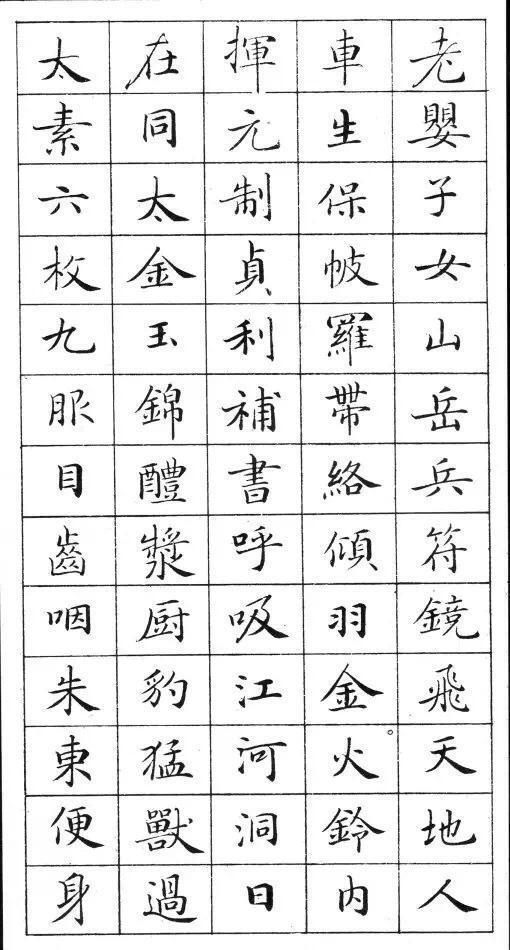 老嬰子女山岳兵符鏡飛天地人
車生保帔羅帶絡傾羽金火鈴内
揮元制貞利補書呼吸江河洞日
在同太金玉錦醴漿厨豹猛獸過
太素六枚九服目齒咽朱東便身